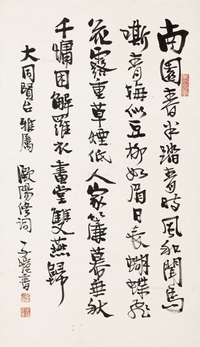 南園春半踏青時風和聞馬
嘶青梅似豆柳如眉日長蝴蝶飛
花露重草煙低人家簾幕垂秋
千慵困解羅衣畫堂雙燕歸
大同賢台雅屬 歐陽修詞 子愷書